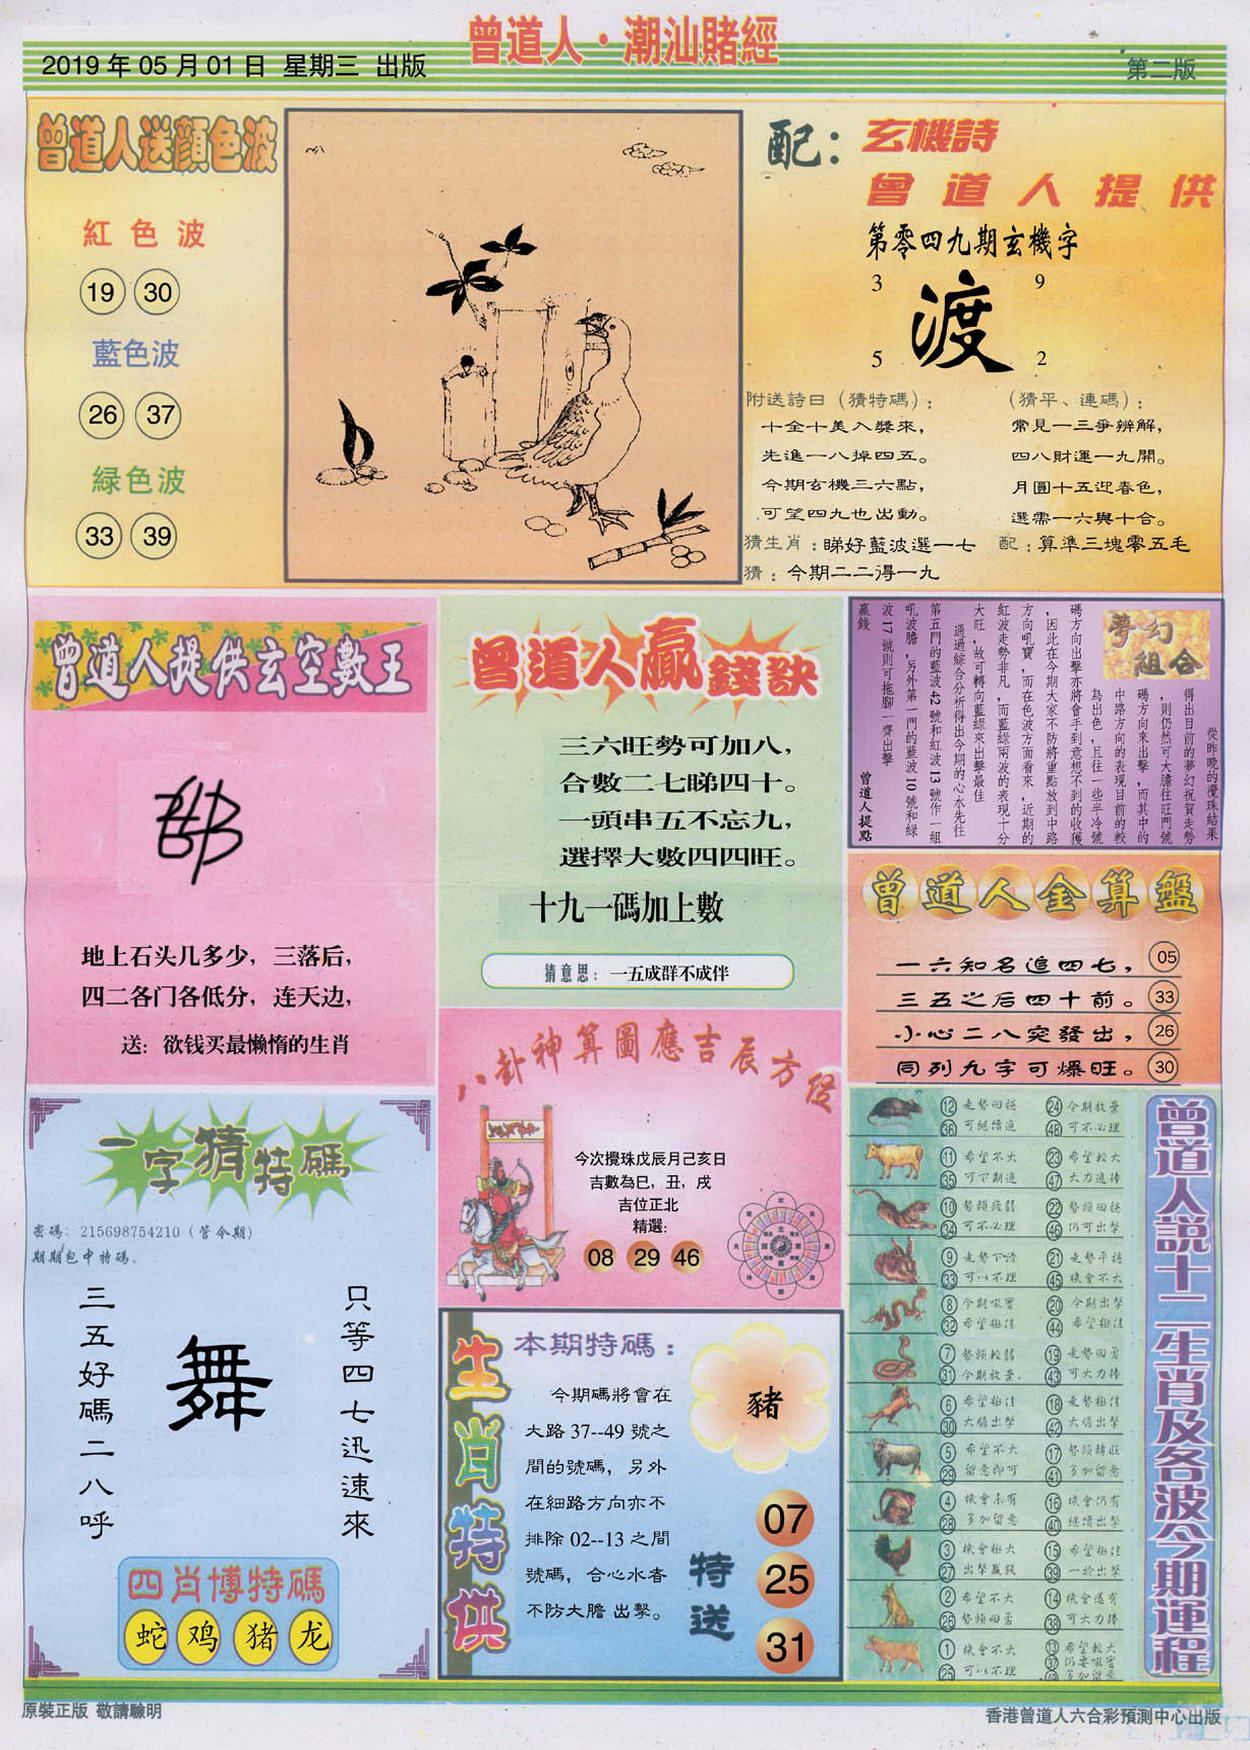 曾道人·潮汕賭經
2019年05月01日 星期三 出版
第二版
曾道人送顔色波
紅色波
19 30
藍色波
26 37
緑色波
33 39
配：玄機詩
曾道人提供
第零四九期玄機字
3 9
渡
5 2
附送詩曰（猜特碼）：
十全十美入獎來，
先進一八掉四五。
今期玄機三六點，
可望四九也出動。
（猜平、連碼）：
常見一三爭辨解，
四八財運一九開。
月圓十五迎春色，
選需一六與十合。
猜生肖：睇好藍波選一七
配：算準三塊零五毛
猜：今期二二得一九
曾道人提供玄空數王
地上石头几多少，三落后，
四二各门各低分，连天边，
送：欲钱买最懒惰的生肖
曾道人贏錢訣
三六旺勢可加八，
合數二七睇四十。
一頭串五不忘九，
選擇大數四四旺。
十九一碼加上數
猜意思：一五成群不成伴
夢幻
組合
從昨晚的攪珠結果
得出目前的夢幻祝賀走勢
，則仍然可大膽往旺門號
碼方向來出擊，而其中的
中路方向的表現目前的較
為出色，且往一些半冷號
碼方向出擊亦將會手到意想不到的收獲
，因此在今期大家不防將重點放到中路
方向吼寶，而在色波方面看來，近期的
紅波走勢非凡，而藍綠兩波的表現十分
大旺，故可轉向藍綠來出擊最佳
通過綜合分析得出今期的心水先往
第五門的藍波42號和紅波13號作一組
吼波膽，另外第一門的藍波10號和綠
波17號則可拖腳一齊出擊
贏錢
曾道人提點
曾道人金算盤
一六知名追四七，05
三五之后四十前。33
小心二八突發出，26
同列九字可爆旺。30
八卦神算圖應吉辰方位
今次攪珠戊辰月己亥日
吉數為巳，丑，戌
吉位正北
精選：
08 29 46
一字猜特碼
密碼：215698754210（管令期）
期期包中特碼。
三五好碼二八呼
舞
只等四七迅速來
四肖博特碼
蛇 鸡 猪 龙
生肖特供
本期特碼：
今期碼將會在
大路37--49號之
間的號碼，另外
在細路方向亦不
排除02--13之間
號碼，合心水者
不防大膽出擊。
豬
特送
07
25
31
曾道人説十二生肖及各波今期運程
12 走勢回穩 24 今期放棄
36 可繼續追 48 可不必理
11 希望不大 23 希望較大
35 可下期追 47 大力追捧
10 勢頭疲弱 22 走勢回穩
34 可不必理 46 仍可出擊
9 走勢下滑 21 走勢平穩
33 可以不理 45 機會不大
8 今期吼寶 20 今期出擊
32 希望極佳 44 希望極佳
7 勢頭較弱 19 走勢回勇
31 今期放棄. 43 可大力捧
6 希望極佳 18 走勢極佳
30 大膽出擊 42 大膽出擊
5 希望不大 17 勢頭轉旺
29 留意即可 41 多加留意
4 機會未有 16 機會仍有
28 多加留意 40 繼續出擊
3 機會極大 15 希望極佳
27 出擊贏錢 39 一於出擊
2 希望不大 14 機會還有
26 勢頭回勇 38 可大力捧
1 機會不大 13 希望較大
25 可以不理 37 仍要吼實
49 多加留意
原裝正版 敬請驗明
香港曾道人六合彩預測中心出版